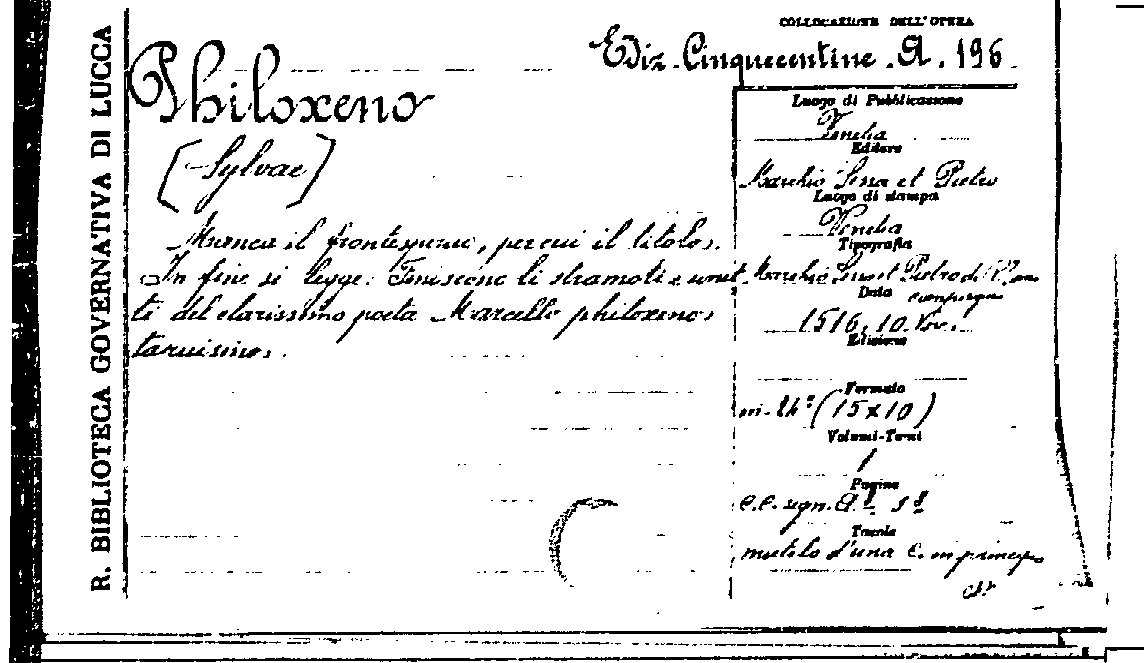 COLLOCAZIONE DELL'OPERA
Ediz. Cinquecentine. A. 196
R. BIBLIOTECA GOVERNATIVA DI LUCCA
Philoxeno
[Sylvae]
Manca il frontespizio, per cui il titolo.
In fine si legge: Finiscono li stramoti e
ti del clarissimo poeta Marcello philoxeno
taruisino.
Luogo di Pubblicazione
Venetia
Editore
Marchio Sessa et Pietro
Luogo di stampa
Venetia
Tipografia
Marchio Sessa et Pietro di
Data
1516, 10 Nov.
Edizione
Formato
in-24º (15x10)
Volumi-Tomi
1
Pagine
c.c. segn. A
Tavole
mutilo d'una c. in principio